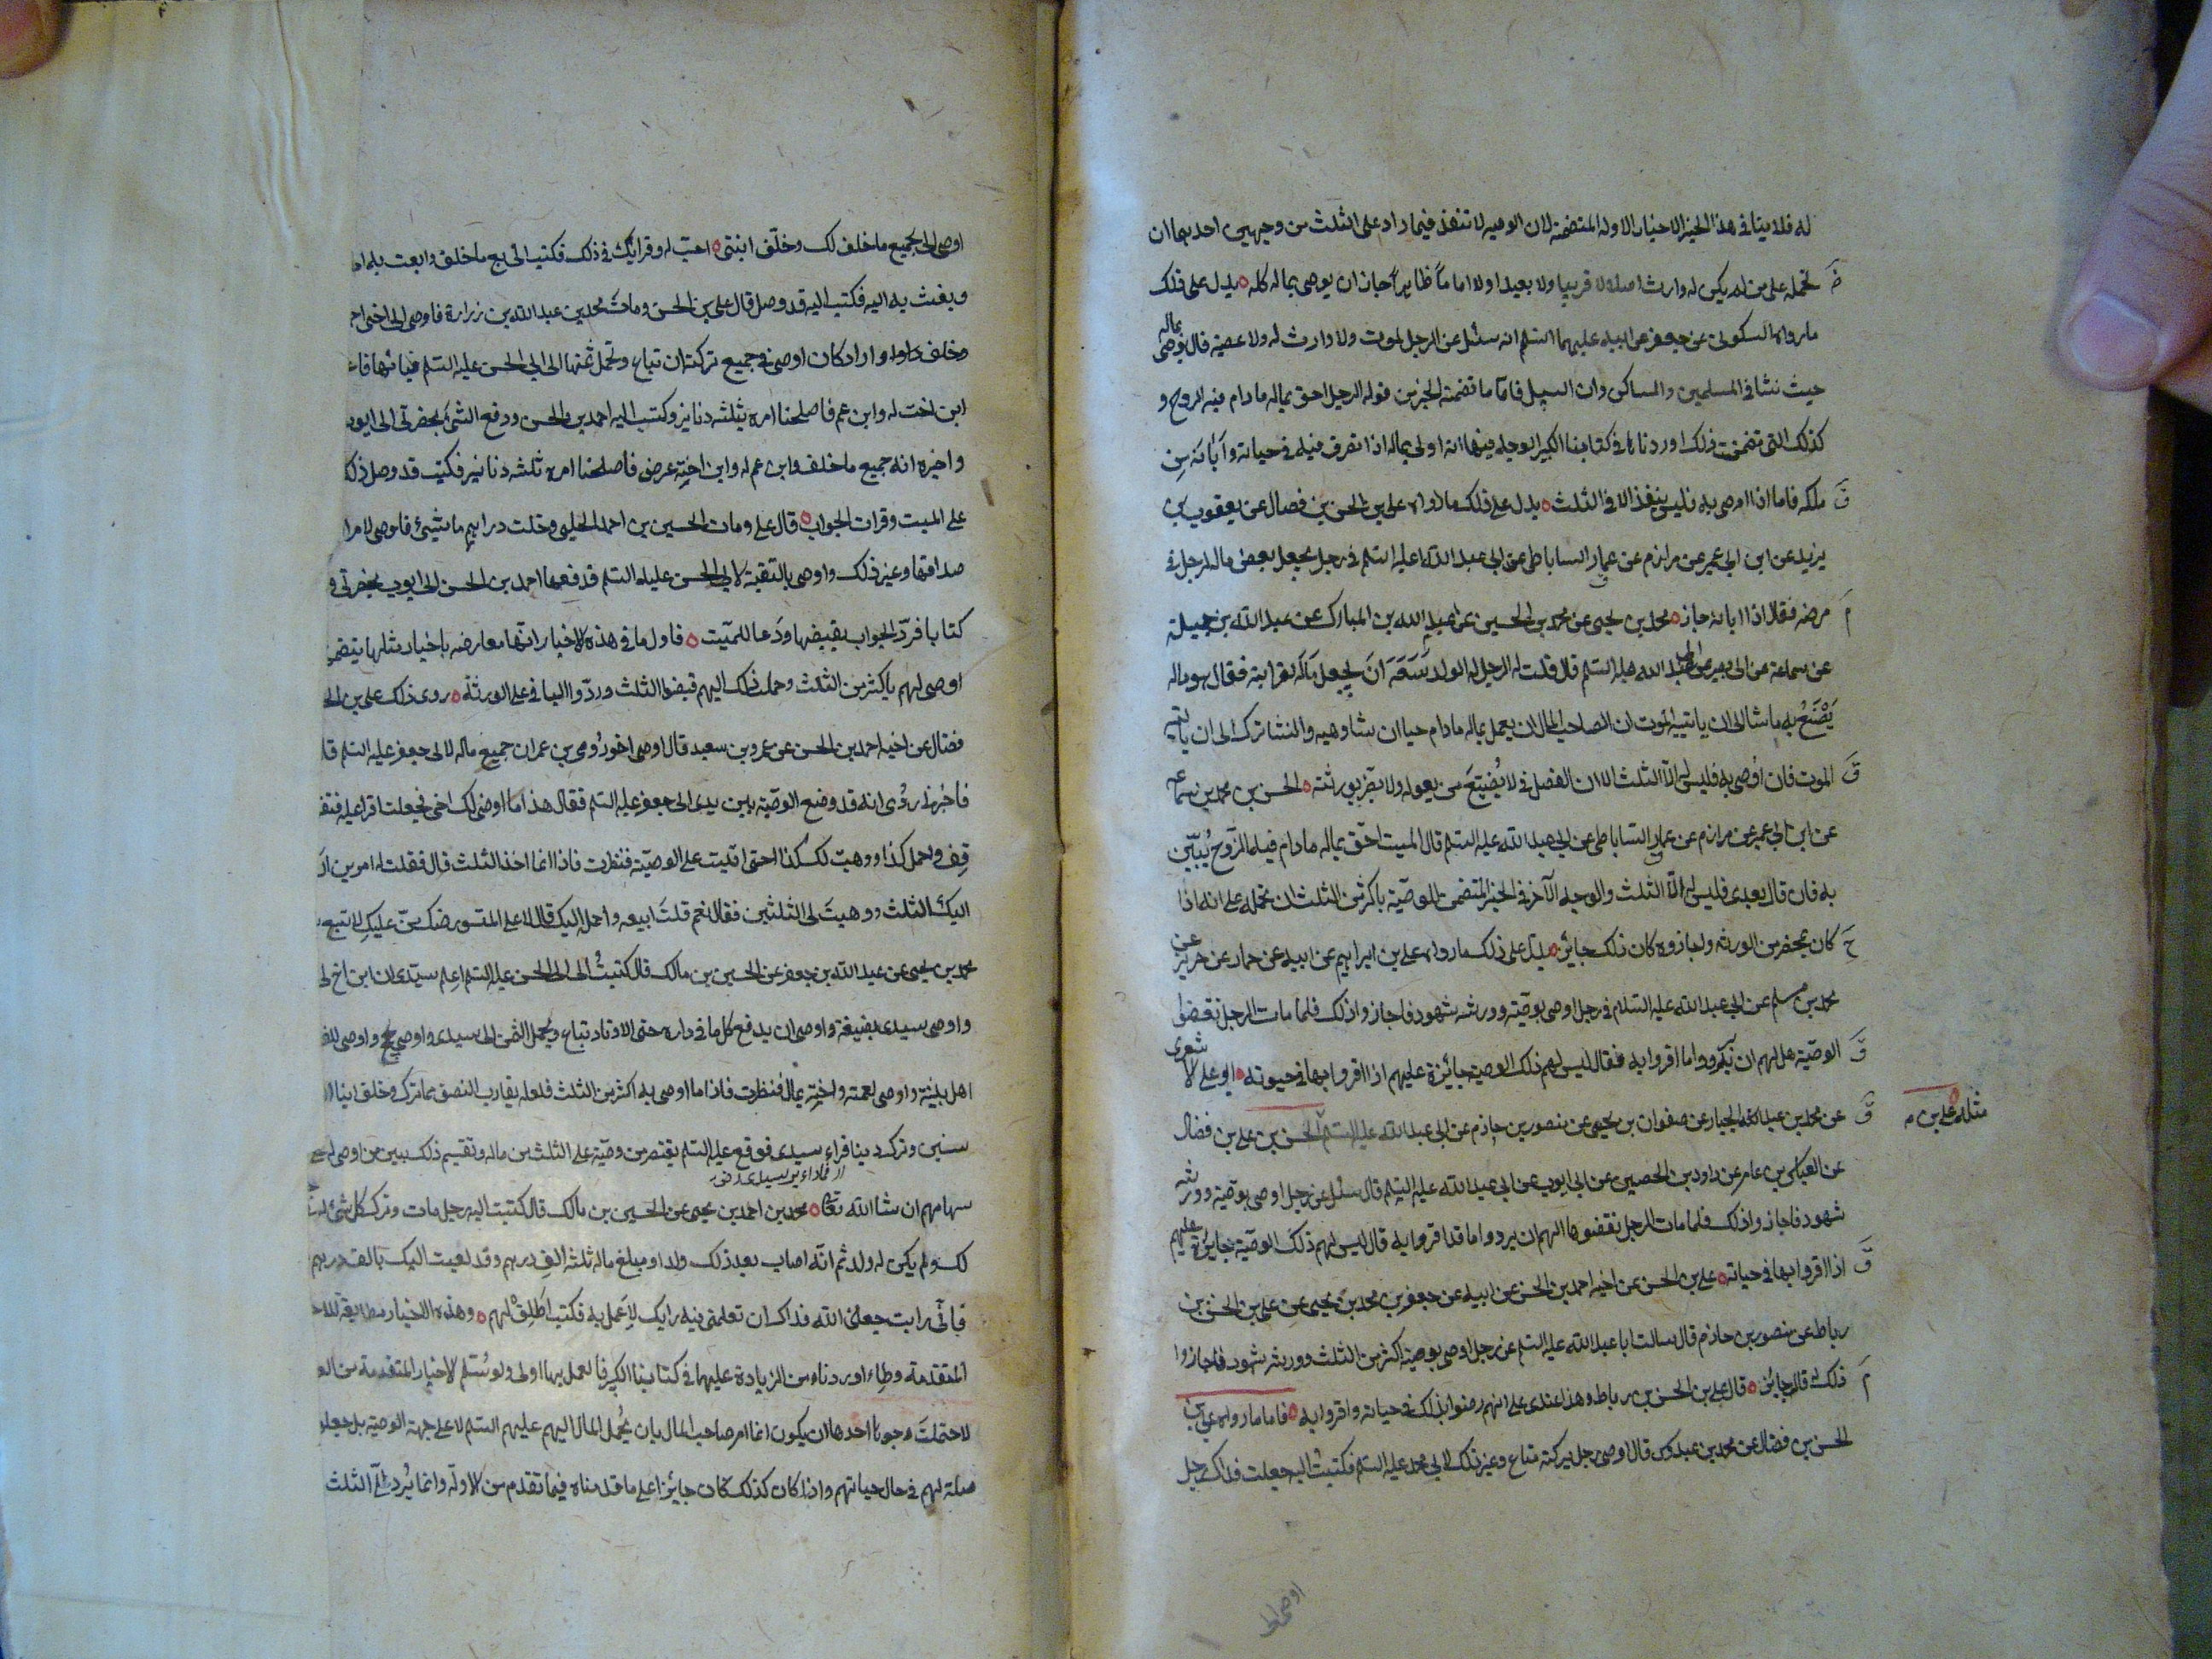 له فلا ينافى هذا الخبر الاخبار الاوله المتضمنة لان الوصيه لا تنفذ فيما زاد على الثلث من وجهين احدهما ان
نحمله على من لم يكن له وارث اصلا لا قريبا ولا بعيدا ولا اماما ظاهرا جاز ان يوصى بماله كله ه يدل على ذلك
ما رواه السكونى عن جعفر عن ابيه عليهما السلم انه سئل عن الرجل يموت ولا وارث له ولا عصبة قال يوصى بماله
حيث شا فى المسلمين والمساكين وابن السبيل فاما ما تضمنه الخبر من قوله الرجل احق بماله مادام فيه الروح و
كذلك التى تضمنت ذلك اوردناها فى كتابنا الكبير الوجه فيها انه اولى بماله اذا تصرف فيه فى حياته وابانه من
ملكه فاما اذا اوصى به فليس ينفذ الا فى الثلث ه يدل على ذلك ما رواه على بن الحسن بن فضال عن يعقوب بن
يزيد عن ابن ابى عمير عن مرازم عن عمار الساباطى عن ابى عبد الله عليه السلم فى رجل يجعل بعض ماله لرجل فى
مرضه فقال اذا ابانه جاز ه محمد بن يحيى عن محمد بن الحسين عن عبد الله بن المبارك عن عبد الله بن جبيلة
عن سماعة عن ابى بصير عن ابى عبد الله عليه السلم قال قلت له الرجل له الولد يسعه ان يجعل ماله لقرابته فقال هو ماله
يصنع به ما شا الى ان ياتيه الموت ان لصاحب المال ان يعمل بماله مادام حيا ان شا وهبه وان شا ترك الى ان ياتيه
الموت فان اوصى به فليس له الا الثلث الا ان الفضل فى لا يضيع من يعوله ولا يضر بورثته ه الحسن بن محمد بن سماعه
عن ابن ابى عمير عن مرازم عن عمار الساباطى عن ابى عبد الله عليه السلم قال الميت احق بماله مادام فيه الروح يبين
به فان قال بعدى فليس له الا الثلث والوجه الآخر فى الخبر المتضمن للوصية باكثر من الثلث ان نحمله على انه اذا
كان بمحضر من الورثه واجازوه كان ذلك جايزا ه يدل على ذلك ما رواه على بن ابراهيم عن ابيه عن حماد عن حريز عن
محمد بن مسلم عن ابى عبد الله عليه السلام فى رجل اوصى بوصية وورثه شهود فاجازوا ذلك فلما مات الرجل نقضوا
الوصية هل لهم ان يردوا ما اقروا به فقال ليس لهم ذلك الوصية جائزة عليهم اذا اقروا بها فى حيوته ه ابو على الاشعرى
مثله على بن م
عن محمد بن عبد الجبار عن صفوان بن يحيى عن منصور بن حازم عن ابى عبد الله عليه السلم الحسن بن على بن فضال
عن العباس بن عامر عن داود بن الحصين عن ابى ايوب عن ابى عبد الله عليه السلم قال سئل عن رجل اوصى بوصية وورثه
شهود فاجازوا ذلك فلما مات الرجل نقضوها الهم ان يردوا ما قد اقروا به قال ليس لهم ذلك الوصية جايزة عليهم
اذا اقروا بها فى حياته ه على بن الحسن عن اخيه احمد بن الحسن عن ابيه عن جعفر بن محمد بن يحيى عن على بن الحسن بن
رباط عن منصور بن حازم قال سالت ابا عبد الله عليه السلم عن رجل اوصى بوصية اكثر من الثلث وورثه شهود فاجازوا
ذلك له قال جايز ه قال على بن الحسن بن رباط وهذا عندى على انهم رضوا بذلك فى حياته واقروا به ه فاما ما رواه على بن
الحسن بن فضال عن محمد بن عبدوس قال اوصى رجل بتركته متاع وغير ذلك لابى محمد عليه السلم فكتبت اليه جعلت فداك رجل
اوصى الى
اوصى الى بجميع ما خلف لك وخلف ابنتى ه اخت له وقرايك فى ذلك فكتب الى بع ما خلف وابعث به الى
وبعثت به اليه فكتب اليه قد وصل قال على بن الحسن ومات محمد بن عبد الله بن زرارة فاوصى الى اخى
وخلف دارا وارا كان اوصى فى جميع تركته ان تباع وتحمل ثمنها الى ابى الحسن عليه السلم فباعها فا
ابن اخت له وابن عم فاصلحنا امره بثلثه دنانير وكتب اليه احمد بن الحسن ودفع الشئ بحضرتى الى ايوب
واخبره انه جميع ما خلف وابن عم له وابن اخته عرض فاصلحنا امره ثلثه دنانير فكتب قد وصل ذلك
على الميت وقرات الجواب ه قال على ومات الحسين بن احمد الحلبى وخلف دراهم مائتى فاوصى لامرا
صداقها وغير ذلك واوصى بالبقية لابى الحسن عليه السلم فدفعها احمد بن الحسن الى ايوب بحضرتى و
كتابا فرد الجواب بقبضها ودعا للميت ه فاول ما فى هذه الاخبار انها معارضه باخبار مثلها يتضمن
اوصى لهم باكثر من الثلث وحمل ذلك اليهم فقبضوا الثلث وردوا الباقى على الورثة ه روى ذلك على بن الح
فضال عن اخيه احمد بن الحسن عن عمرو بن سعيد قال اوصى اخو رومى بن عمران جميع ماله لابى جعفر عليه السلم قا
فاخبرنا رومى انه قد وضع الوصية بين يدى ابى جعفر عليه السلم فقال هذا ما اوصى لك اخى فجعلت اقرا عليه فيقف
قف ويحمل كذا ووهبت لك كذا حتى اتيت على الوصية فنظرت فاذا انما اخذ الثلث قال فقلت له امرتنى ان
اليك الثلث ووهبت لى الثلثين فقال نعم قلت ابيعه واحمله اليك قال لا على الميسور منك عليك لا تبع
محمد بن يحيى عن عبد الله بن جعفر عن الحسين بن مالك قال كتبت الى ابى الحسن عليه السلم اعلم سيدى ان ابن اخ لى
واوصى سيدى بضيعة واوصى ان يدفع كل ما فى داره حتى الاوتاد تباع ويحمل الثمن الى سيدى واوصى بحج واوصى للفـ
اهل بيته واوصى لعمته واخته بمال فنظرت فاذا ما اوصى به اكثر من الثلث فلعله يقارب النصف مما ترك وخلف ابنا
سنين وترك دينا فراى سيدى فوقع عليه السلم يقتصر من وصية على الثلث من ماله وتقسيم ذلك بين من اوصى له على
سهامهم ان شا الله تعا ه محمد بن احمد بن يحيى عن الحسين بن مالك قال كتبت اليه رجل مات وترك كل شئ له
لك ولم يكن له ولد ثم انه اصاب بعد ذلك ولدا ومبلغ ماله ثلثه الف درهم وقد بعثت اليك بالف درهم
فان رايت جعلنى الله فداك ان تعلمنى فيه رايك لاعمل به فكتب اطلق لهم ه وهذه الاخبار مطابقة للاخ
المتقدمة وما اوردناه من الزيادة عليها فى كتابنا الكبير فالعمل بها اولى ولو سلم لاخبار المتقدمة من الو
لاحتملت وجوها احدها ان يكون انما امر صاحب المال بان يحمل المال اليهم عليهم السلم لا على جهة الوصيه بل جعلو
صلة لهم فى حال حياتهم واذا كان كذلك كان جايزا على ما قدمناه فيما تقدم من الاوله وانما يرد الى الثلث